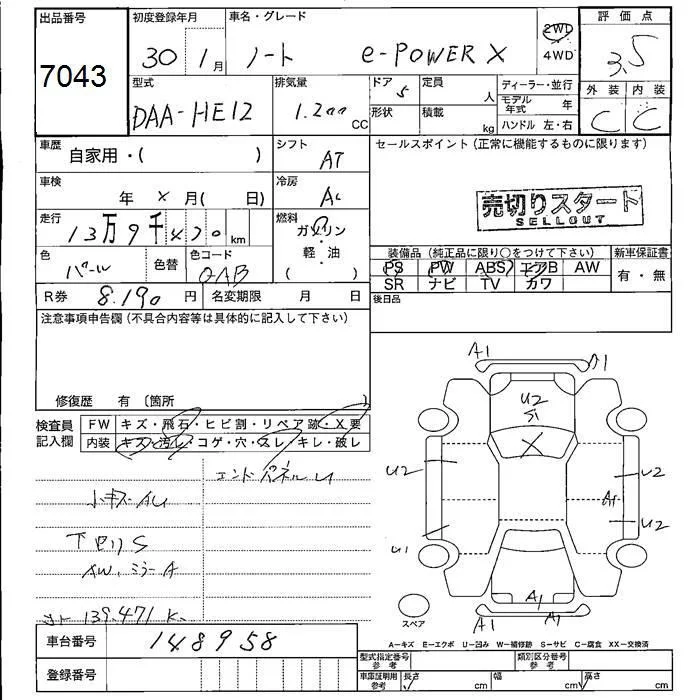 出品番号 初度登録年月 車名・グレード 評価点
7043 30年 1月 ノート e-POWER X 2WD 4WD 3.5
型式 排気量 ドア 定員 ディーラー・並行 外装 内装
DAA-HE12 1.200 CC 5 人 モデル年式 年 C C
形状 積載 kg ハンドル 左・右
車歴 自家用・( ) シフト AT セールスポイント(正常に機能するものに限ります)
車検 年 × 月( 日) 冷房 AC
売切りスタート
SELLOUT
走行 13万9千420km 燃料 ガソリン・軽・油( )
色 パール 色替 色コード QAB 装備品(純正品に限り○をつけて下さい) 新車保証書
PS PW ABS エアB AW 有・無
SR ナビ TV カワ
R券 8.190円 名変期限 月 日 後日品
注意事項申告欄(不具合内容等は具体的に記入して下さい)
修復歴 有 〔箇所 〕
検査員記入欄 FW キズ・飛石・ヒビ割・リペア跡・X要
内装 キズ・汚レ・コゲ・穴・スレ・キレ・破レ
エンドパネル
小キズ AU
下セリS
AW、ミラーA
139.471 K
A1 A1
U2
S1
X
U2 U2
A1
U1 U2
A1
A1 A1
スペア
A=キズ E=エクボ U=凹み W=補修跡 S=サビ C=腐食 XX=交換済
車台番号 148958
型式指定番号 参考 類別区分番号 参考
登録番号
車庫証明用 参考 長さ cm 幅 cm 高さ cm